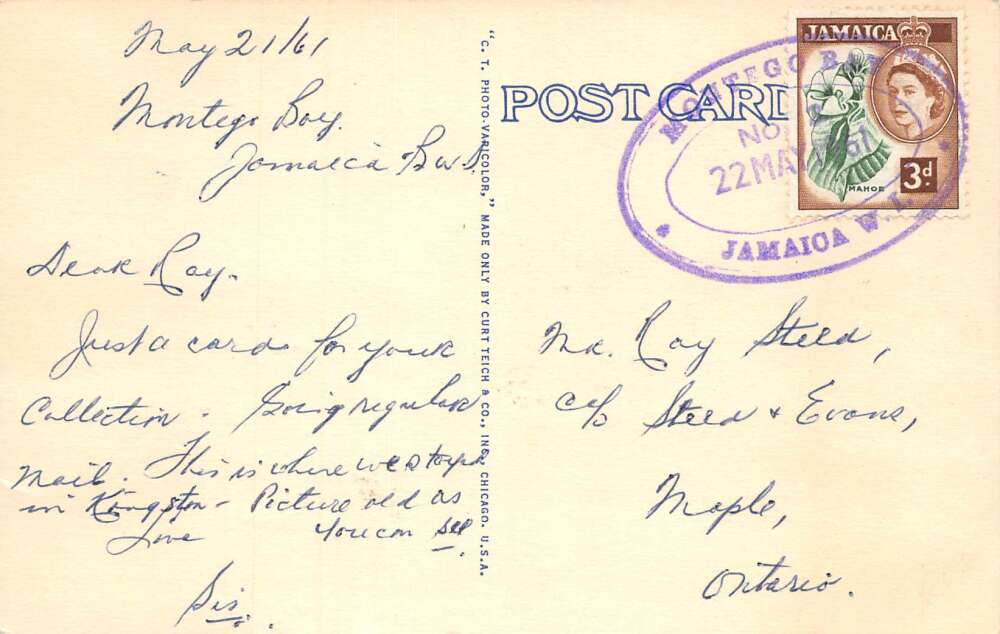 May 21/61
Montego Bay.
Jamaica B.W.I.
Dear Ray.
Just a card for your
Collection. Going regular
mail. This is where we stayed
in Kingston - Picture old as
Love you can see.
Sis.
"C. T. PHOTO-VARICOLOR," MADE ONLY BY CURT TEICH & CO., INC., CHICAGO. U.S.A.
POST CARD
MONTEGO BAY
No
22 MAY 61
JAMAICA W.I.
JAMAICA
MAHOE
3d.
Mr. Ray Steed,
c/o Steed & Evans,
Maple,
Ontario.